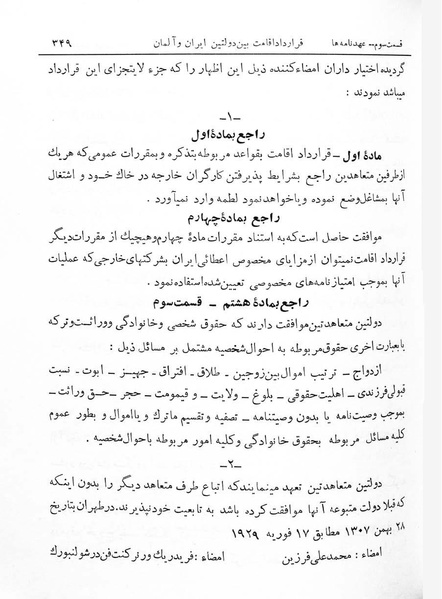 قسمت سوم – عهدنامه ها قرارداد اقامت بین دولتین ایران و آلمان ۳۴۹
گردیده اختیار داران امضاء کننده ذیل این اظهار را که جزء لایتجزای این قرارداد
میباشد نمودند :
–۱–
راجع بمادهٔ اول
مادهٔ اول – قرارداد اقامت بقواعد مربوطه بتذکره و بمقررات عمومی که هریک
از طرفین متعاهدین راجع بشرایط پذیرفتن کارگران خارجه در خاك خود و اشتغال
آنها بمشاغل وضع نموده و یا خواهد نمود لطمه وارد نمیآورد .
راجع بمادهٔ چهارم
موافقت حاصل است که به استناد مقررات مادهٔ چهارم و هیچیك از مقررات دیگر
قرارداد اقامت نمیتوان از مزایای مخصوص اعطائی ایران بشرکتهای خارجی که عملیات
آنها بموجب امتیاز نامه های مخصوصی تعیین شده استفاده نمود .
راجع بمادهٔ هشتم – قسمت سوم
دولتین متعاهدتین موافقت دارند که حقوق شخصی و خانوادگی و وراثت و ترکه
یا بعبارت اخری حقوق مربوطه به احوال شخصیه مشتمل بر مسائل ذیل :
ازدواج – ترتیب اموال بین زوجین – طلاق – افتراق – جهیز – ابوت – نسبت
قبولی فرزندی – اهلیت حقوقی – بلوغ – ولایت – و قیمومت – حجر – حق وراثت –
بموجب وصیت نامه یا بدون وصیتنامه – تصفیه و تقسیم ماترك و یا اموال و بطور عموم
کلیه مسائل مربوطه بحقوق خانوادگی و کلیه امور مربوطه باحوال شخصیه .
–۲–
دولتین متعاهدتین تعهد مینمایند که اتباع طرف متعاهد دیگر را بدون اینکه
قبلا دولت متبوعه آنها موافقت کرده باشد به تابعیت خود نپذیرند . در طهران بتاریخ
۲۸ بهمن ۱۳۰۷ مطابق ۱۷ فوریه ۱۹۲۹
امضاء : محمدعلی فرزین امضاء : فریدریك ورنر کنت فن در شولنبورك